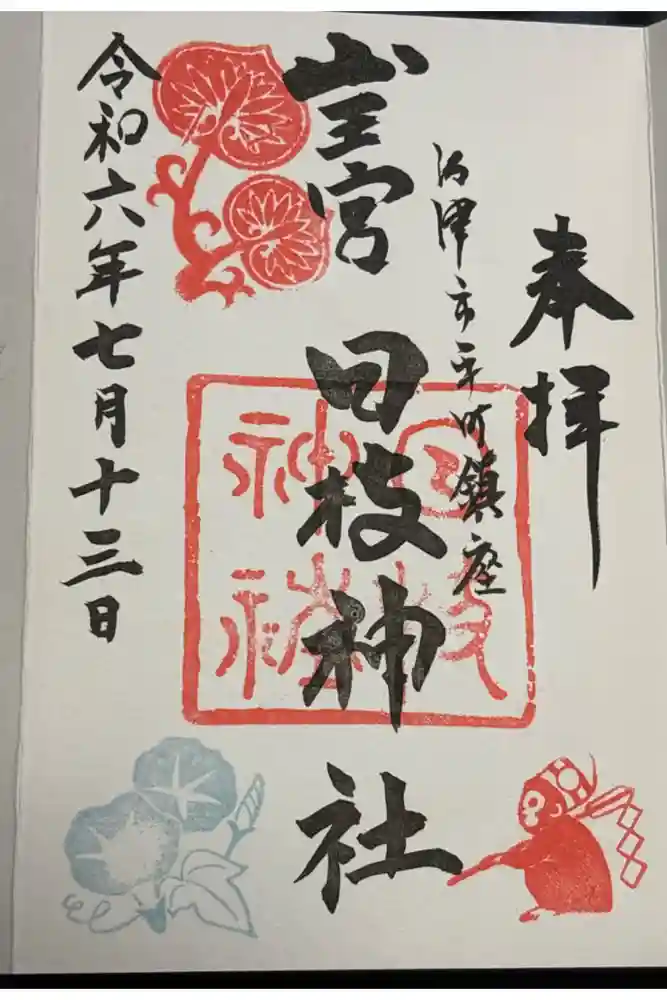 奉拝
沼津市平町鎮座
山王宮
日枝神社
日枝神社
令和六年七月十三日